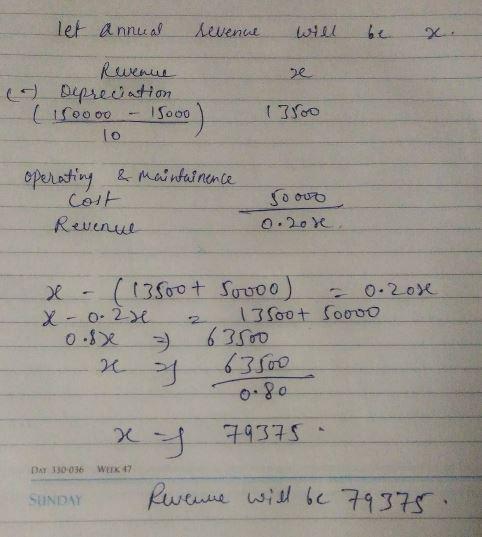 let annual revenue will be x.
Revenue x
(-) Depreciation
(150000 - 15000 / 10) 13500
operating & Maintainence
Cost 50000
Revenue 0.20x.
x - (13500 + 50000) = 0.20x
x - 0.2x = 13500 + 50000
0.8x => 63500
x => 63500 / 0.80
x => 79375.
DAY 330-036 WEEK 47
SUNDAY Revenue will be 79375.